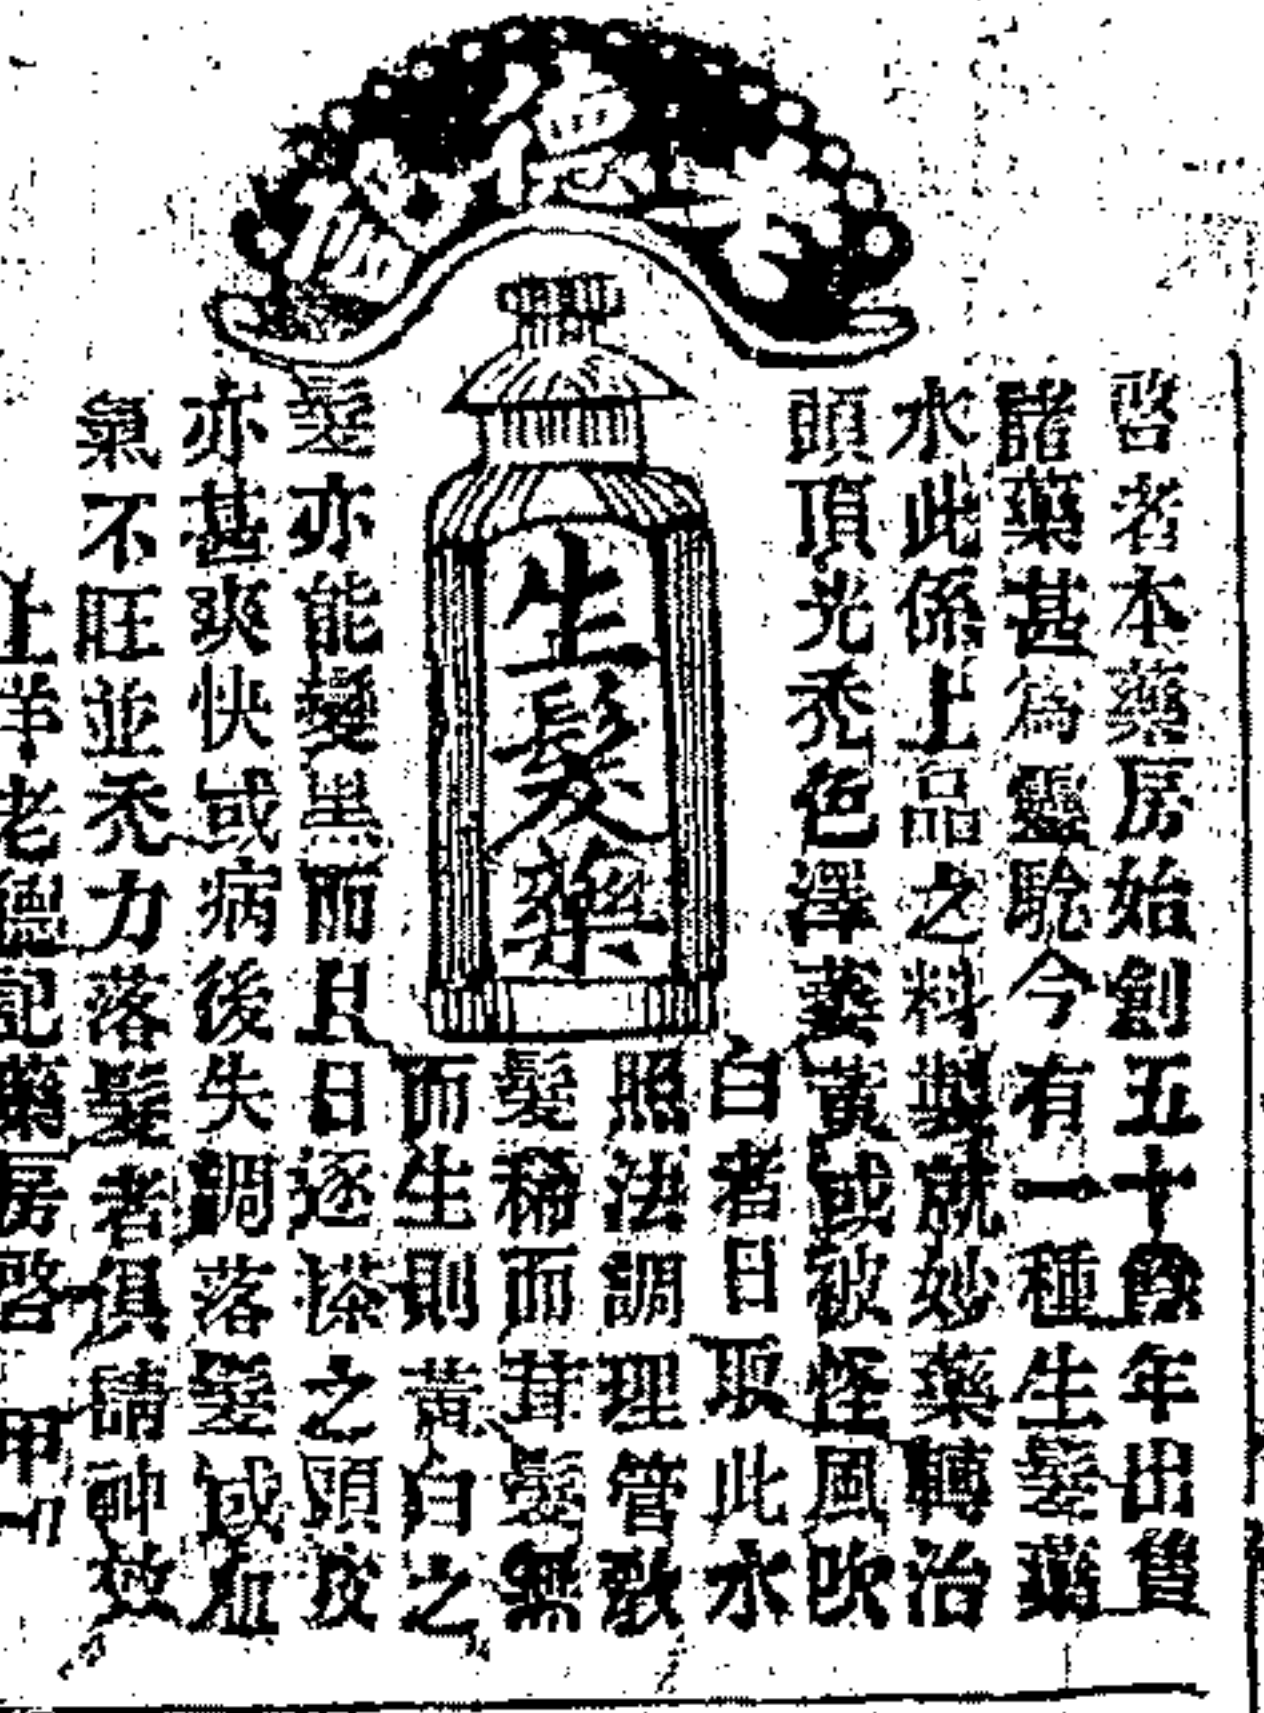 老德記
生髮藥
啓者本藥房始創五十餘年出售
諸藥甚為靈驗今有一種生髮藥
水此係上品之料製就妙藥轉治
頭頂光禿色澤萎黃或被怪風吹
白者日取此水
照法調理管敎
髮稀而茸髮無
而生則黃白之
髮亦能變黑而且日逐搽之頭皮
亦甚爽快或病後失調落髮或血
氣不旺並禿力落髮者俱請神效
上洋老德記藥房啓